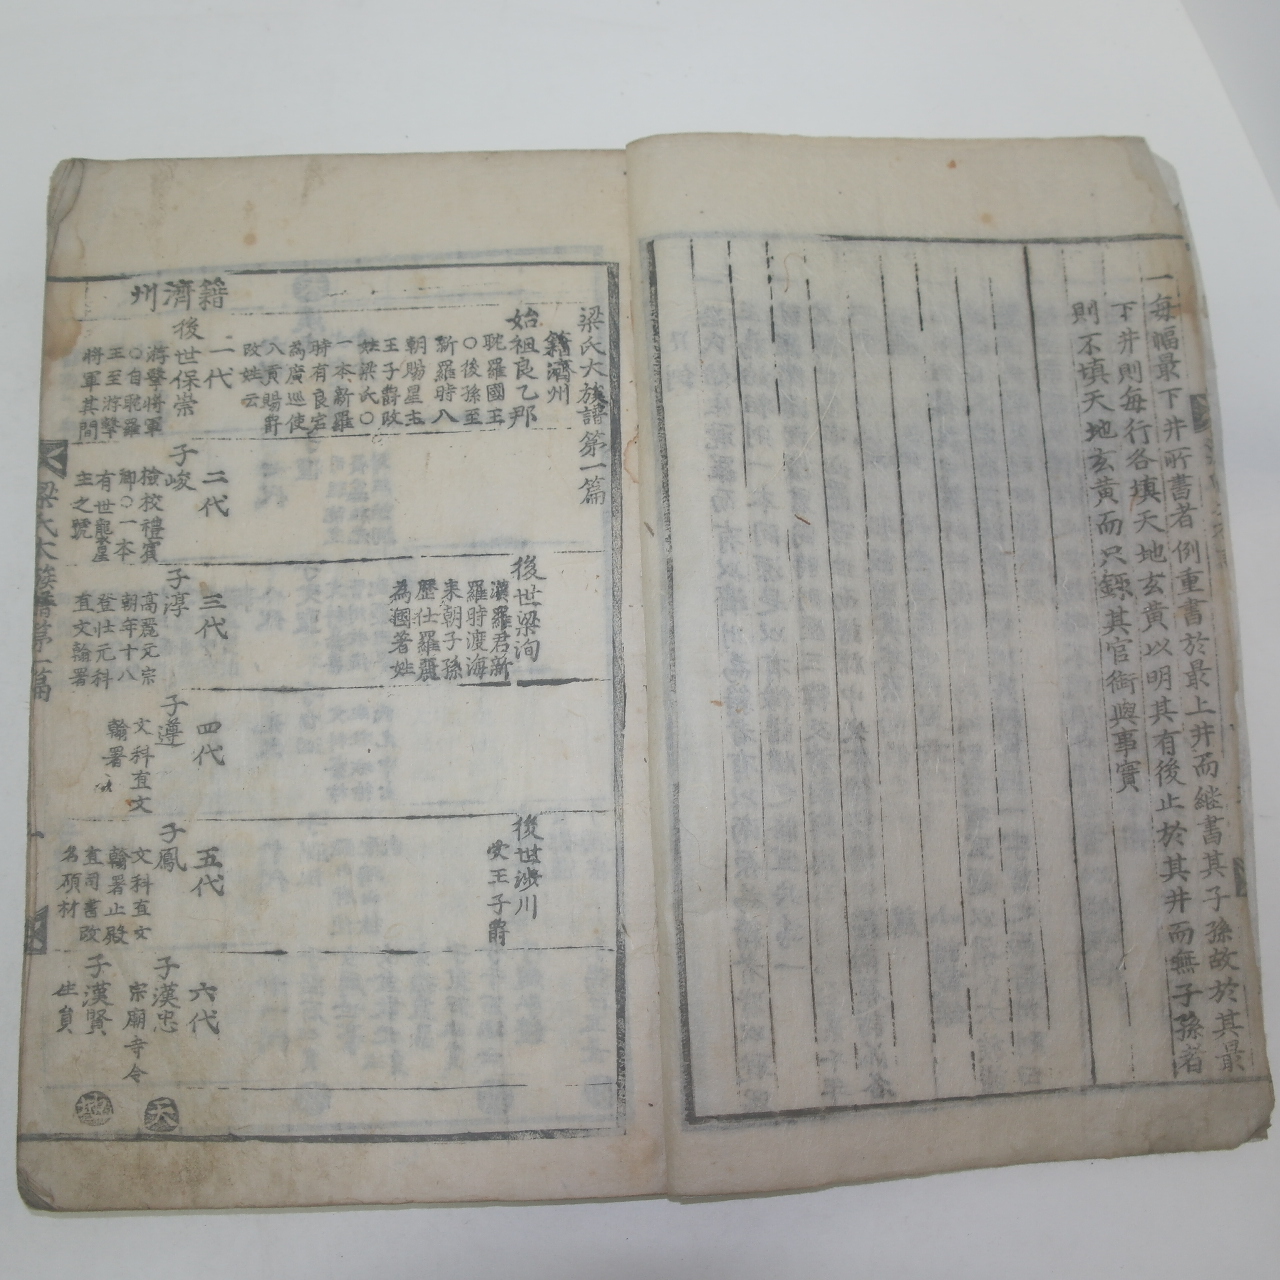 一每幅最下井所書者例重書於最上井而継書其子孫故於其最
下井則每行各填天地玄黄以明其有後止於其井而無子孫者
則不填天地玄黄而只錄其官衘與事實
梁氏大族譜第一篇
籍濟州
始祖良乙那
耽羅國王
○後孫至
新羅時入
朝賜星主
王子爵改
姓梁氏○
一本新羅
時有良宕
為廣巡使
入貢賜爵
改姓云
後世梁洵
漢羅君新
羅時渡海
来朝子孫
歷仕羅麗
為國著姓
後世淡川
受王子爵
籍濟州
一代
後世保崇
蔣擊將軍
○自耽羅
王至游擊
將軍其間
二代
子峻
檢校禮賓
卿○一本
有世龍星
主之號
三代
子淳
高麗元宗
朝年十八
登仕元科
直文翰署
四代
子遵
文科直文
翰署
五代
子鳳
文科直文
翰署止殿
直司書改
名碩材
六代
子漢忠
宗廟寺令
天
子漢賢
生員
地
梁氏大族譜第一篇
一